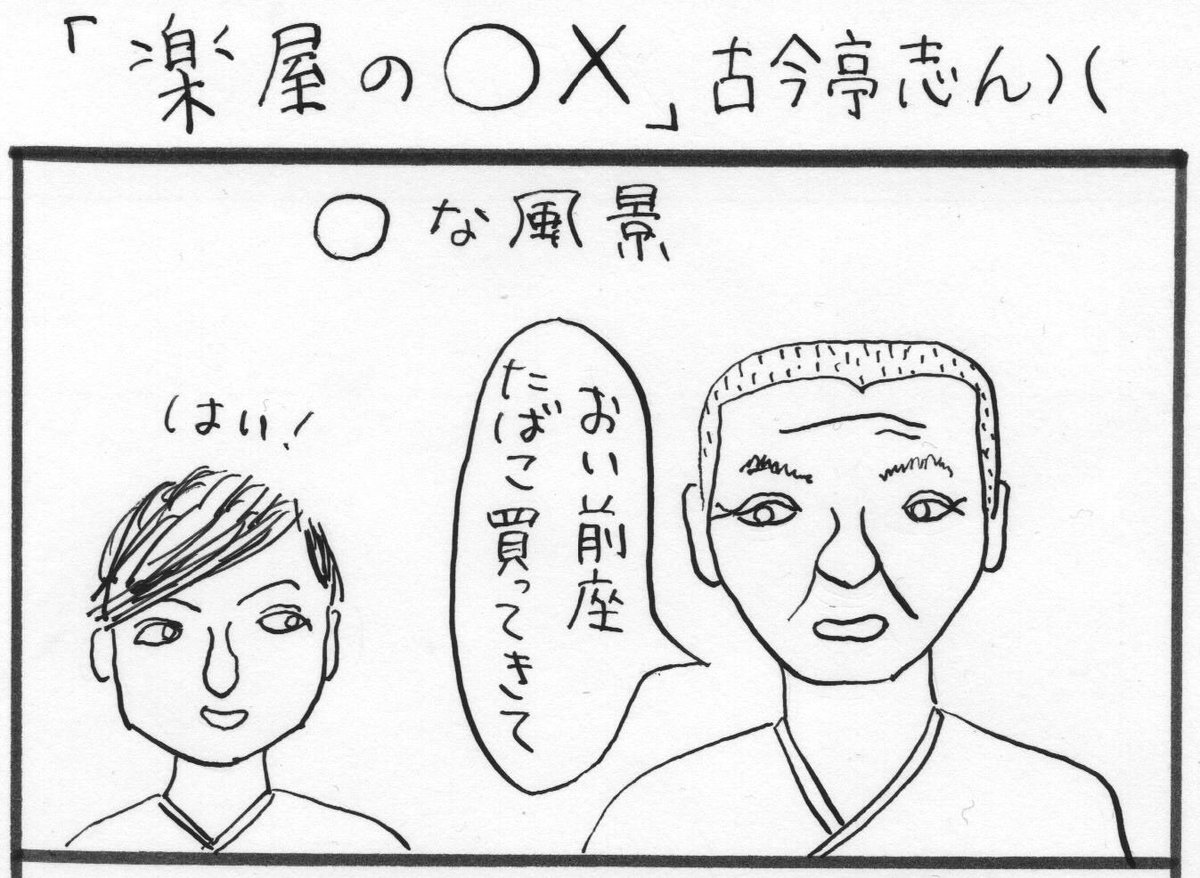 「楽屋の○×」古今亭志ん八
○な風景
おい前座
たばこ買ってきて
はい!